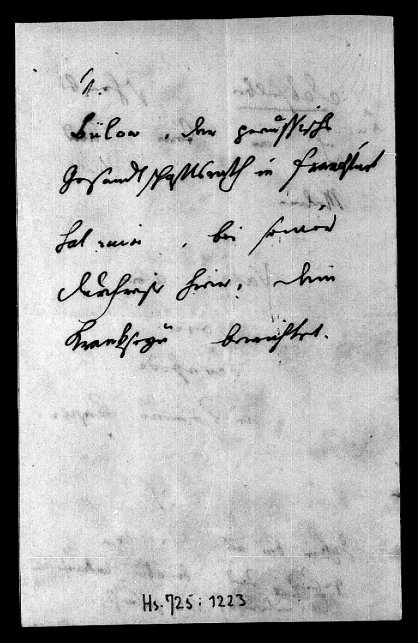 1.
Bülow, der preußische
Gesandtschaftsrath in Frankfurt
hat mir, bei seiner
Durchreise hier, dein
Krankseyn berichtet.
Hs. 725 : 1223